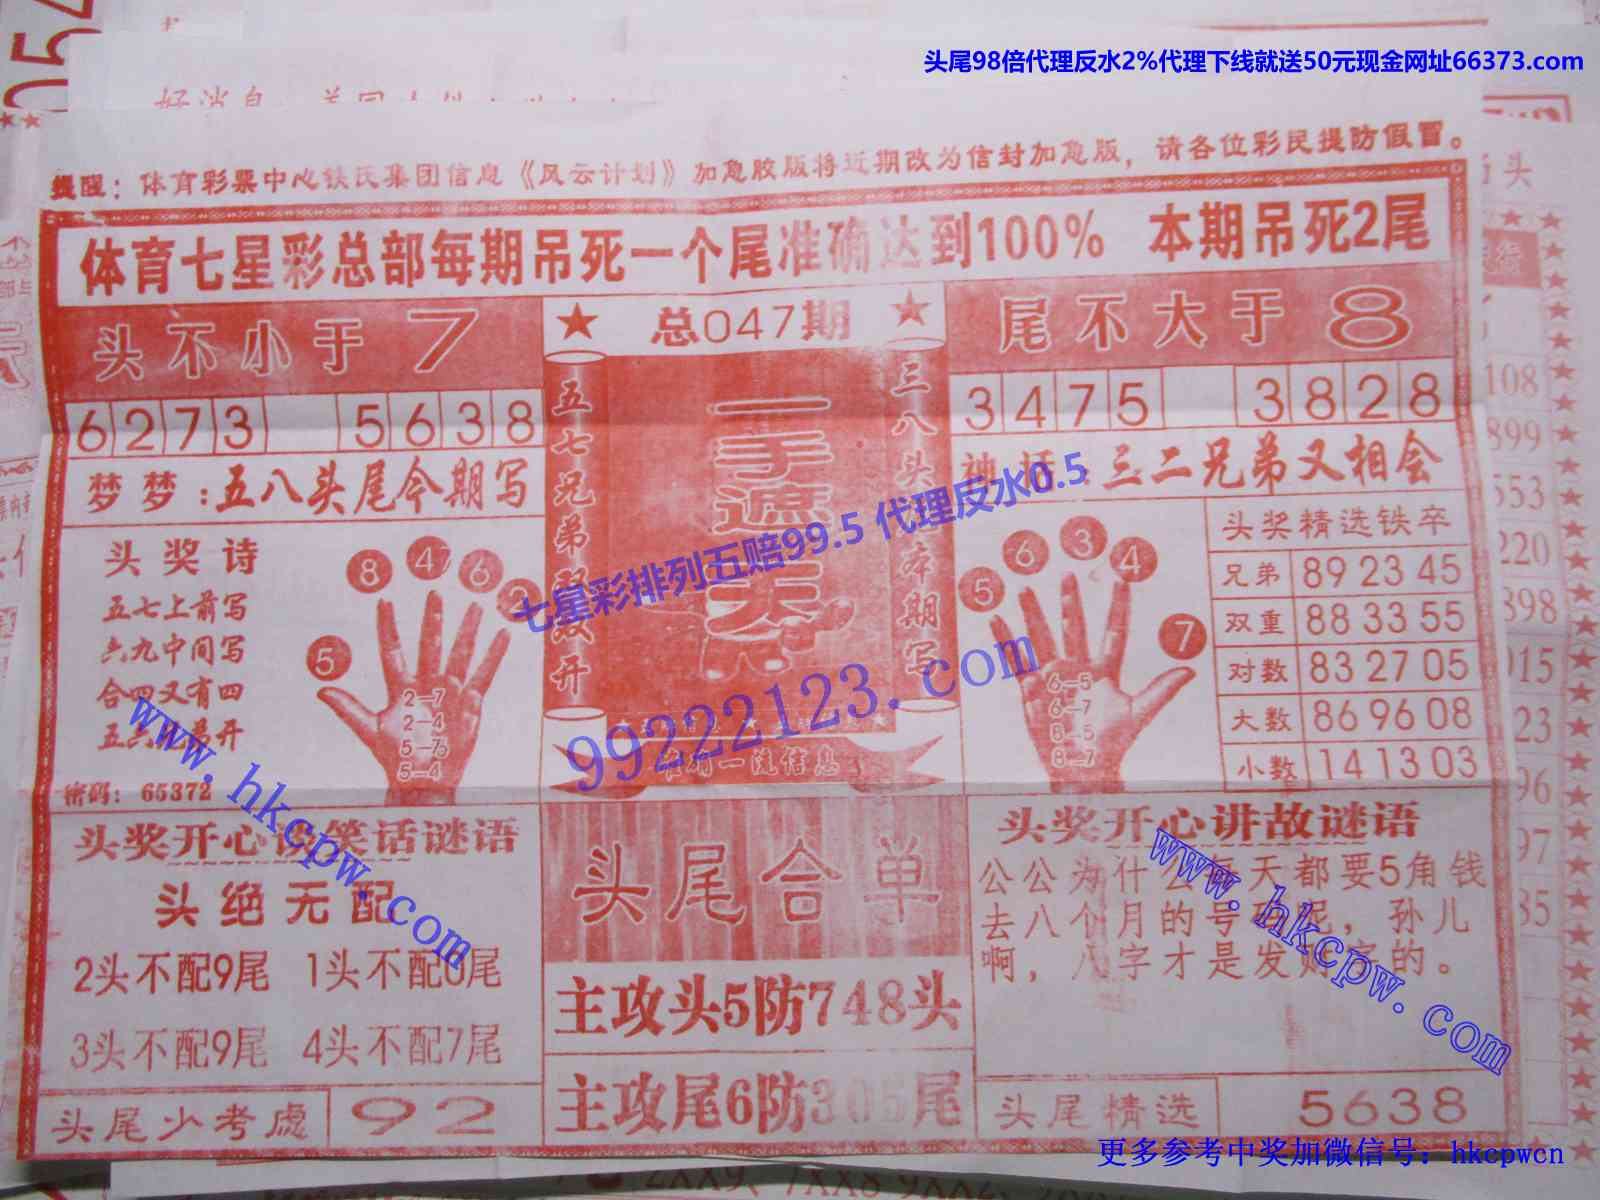 头尾98倍代理反水2%代理下线就送50元现金网址66373.com
提醒：体育彩票中心铁氏集团信息《风云计划》加急胶版将近期改为信封加急版，请各位彩民提防假冒。
体育七星彩总部每期吊死一个尾准确达到100% 本期吊死2尾
头不小于7
6273 5638
梦梦：五八头尾今期写
头奖诗
五七上前写
六九中间写
合四又有四
密码：65372
8 47 6 2
5
2-7
2-4
5-7
5-4
总047期
五七兄弟双双开
一手遮天
三八头尾本期写
一流信息
尾不大于8
3475 3828
神话：三二兄弟又相会
5 6 3 4
7
6-5
6-7
8-5
8-7
头奖精选铁卒
兄弟 89 23 45
双重 88 33 55
对数 83 27 05
大数 86 96 08
小数 14 13 03
七星彩排列五赔99.5 代理反水0.5
99222123.com
www.hkcpw.com
头奖开心说笑话谜语
头绝无配
2头不配9尾 1头不配6尾
3头不配9尾 4头不配7尾
头尾少考虑 92
头尾合单
主攻头5防748头
主攻尾6防305尾
头奖开心讲故谜语
公公为什么每天都要5角钱
去八个月的号码呢，孙儿
啊，八字才是发财字的。
www.hkcpw.com
头尾精选 5638
更多参考中奖加微信号：hkcpwcn